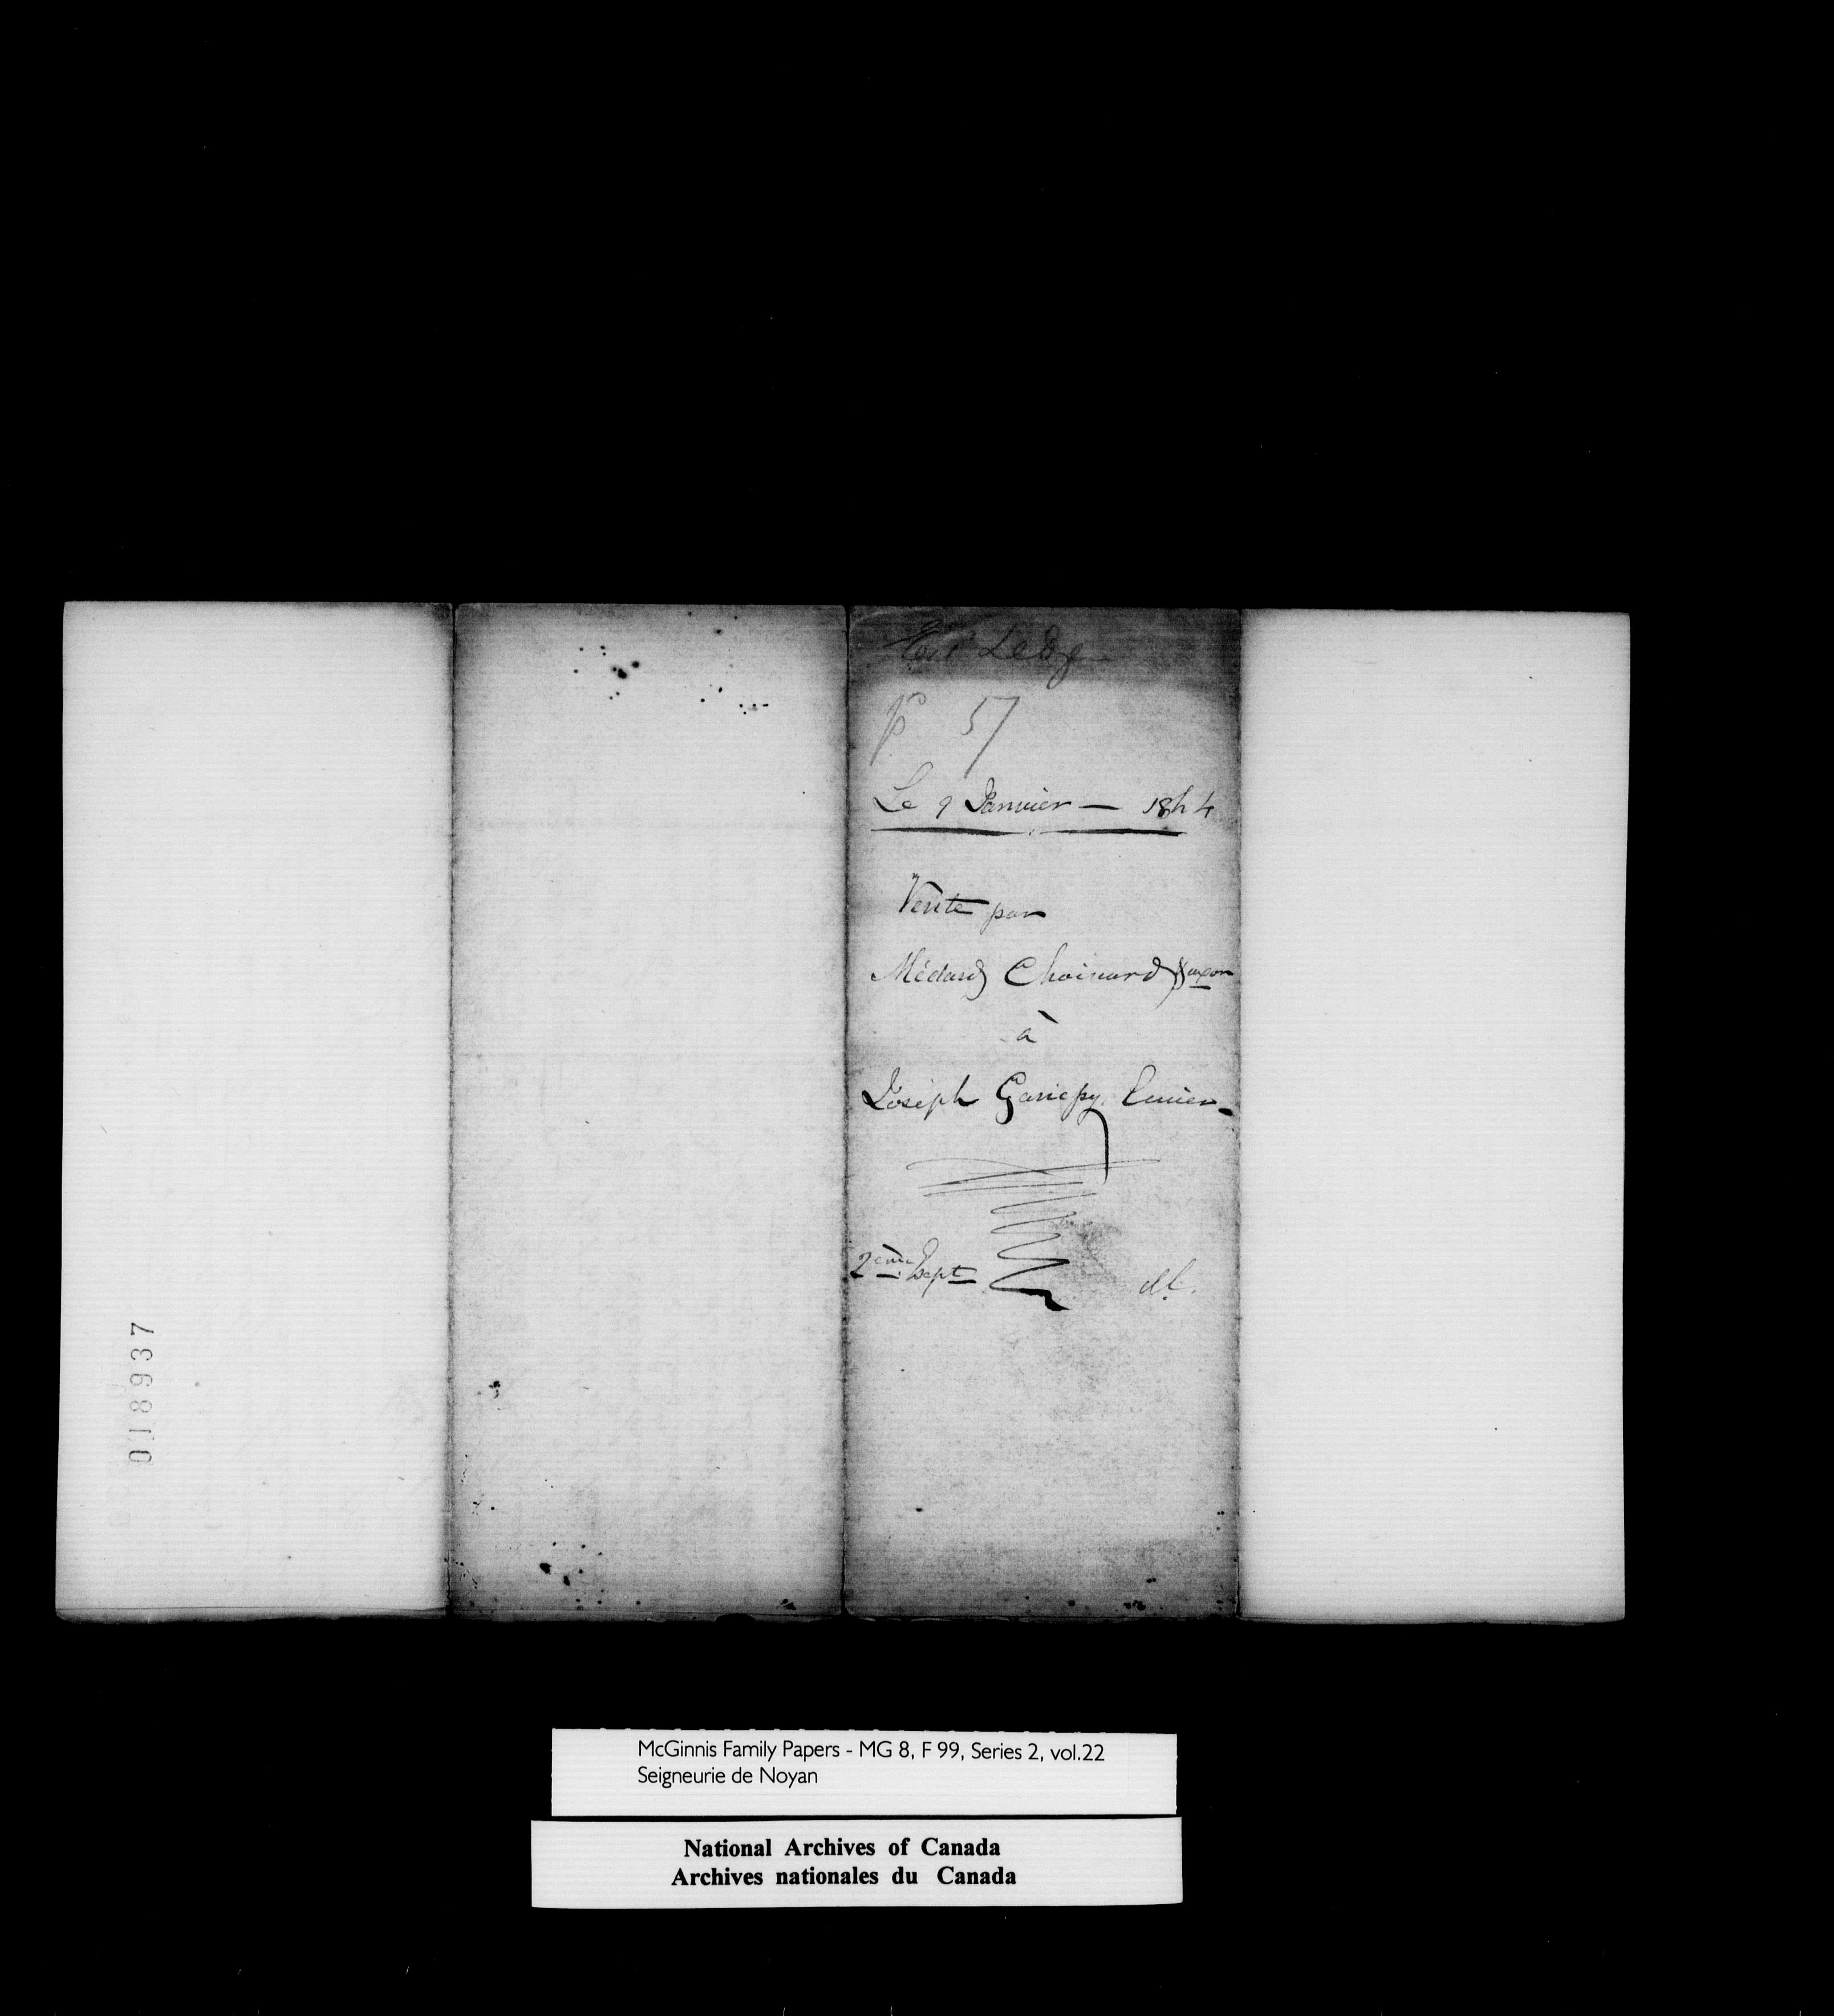 Ledg
p 57
Le 9 Janvier — 1844
Vente par
Médard Choinard & uxor
à
Joseph Gariepy
2ème Expt
018937
McGinnis Family Papers - MG 8, F 99, Series 2, vol.22
Seigneurie de Noyan
National Archives of Canada
Archives nationales du Canada